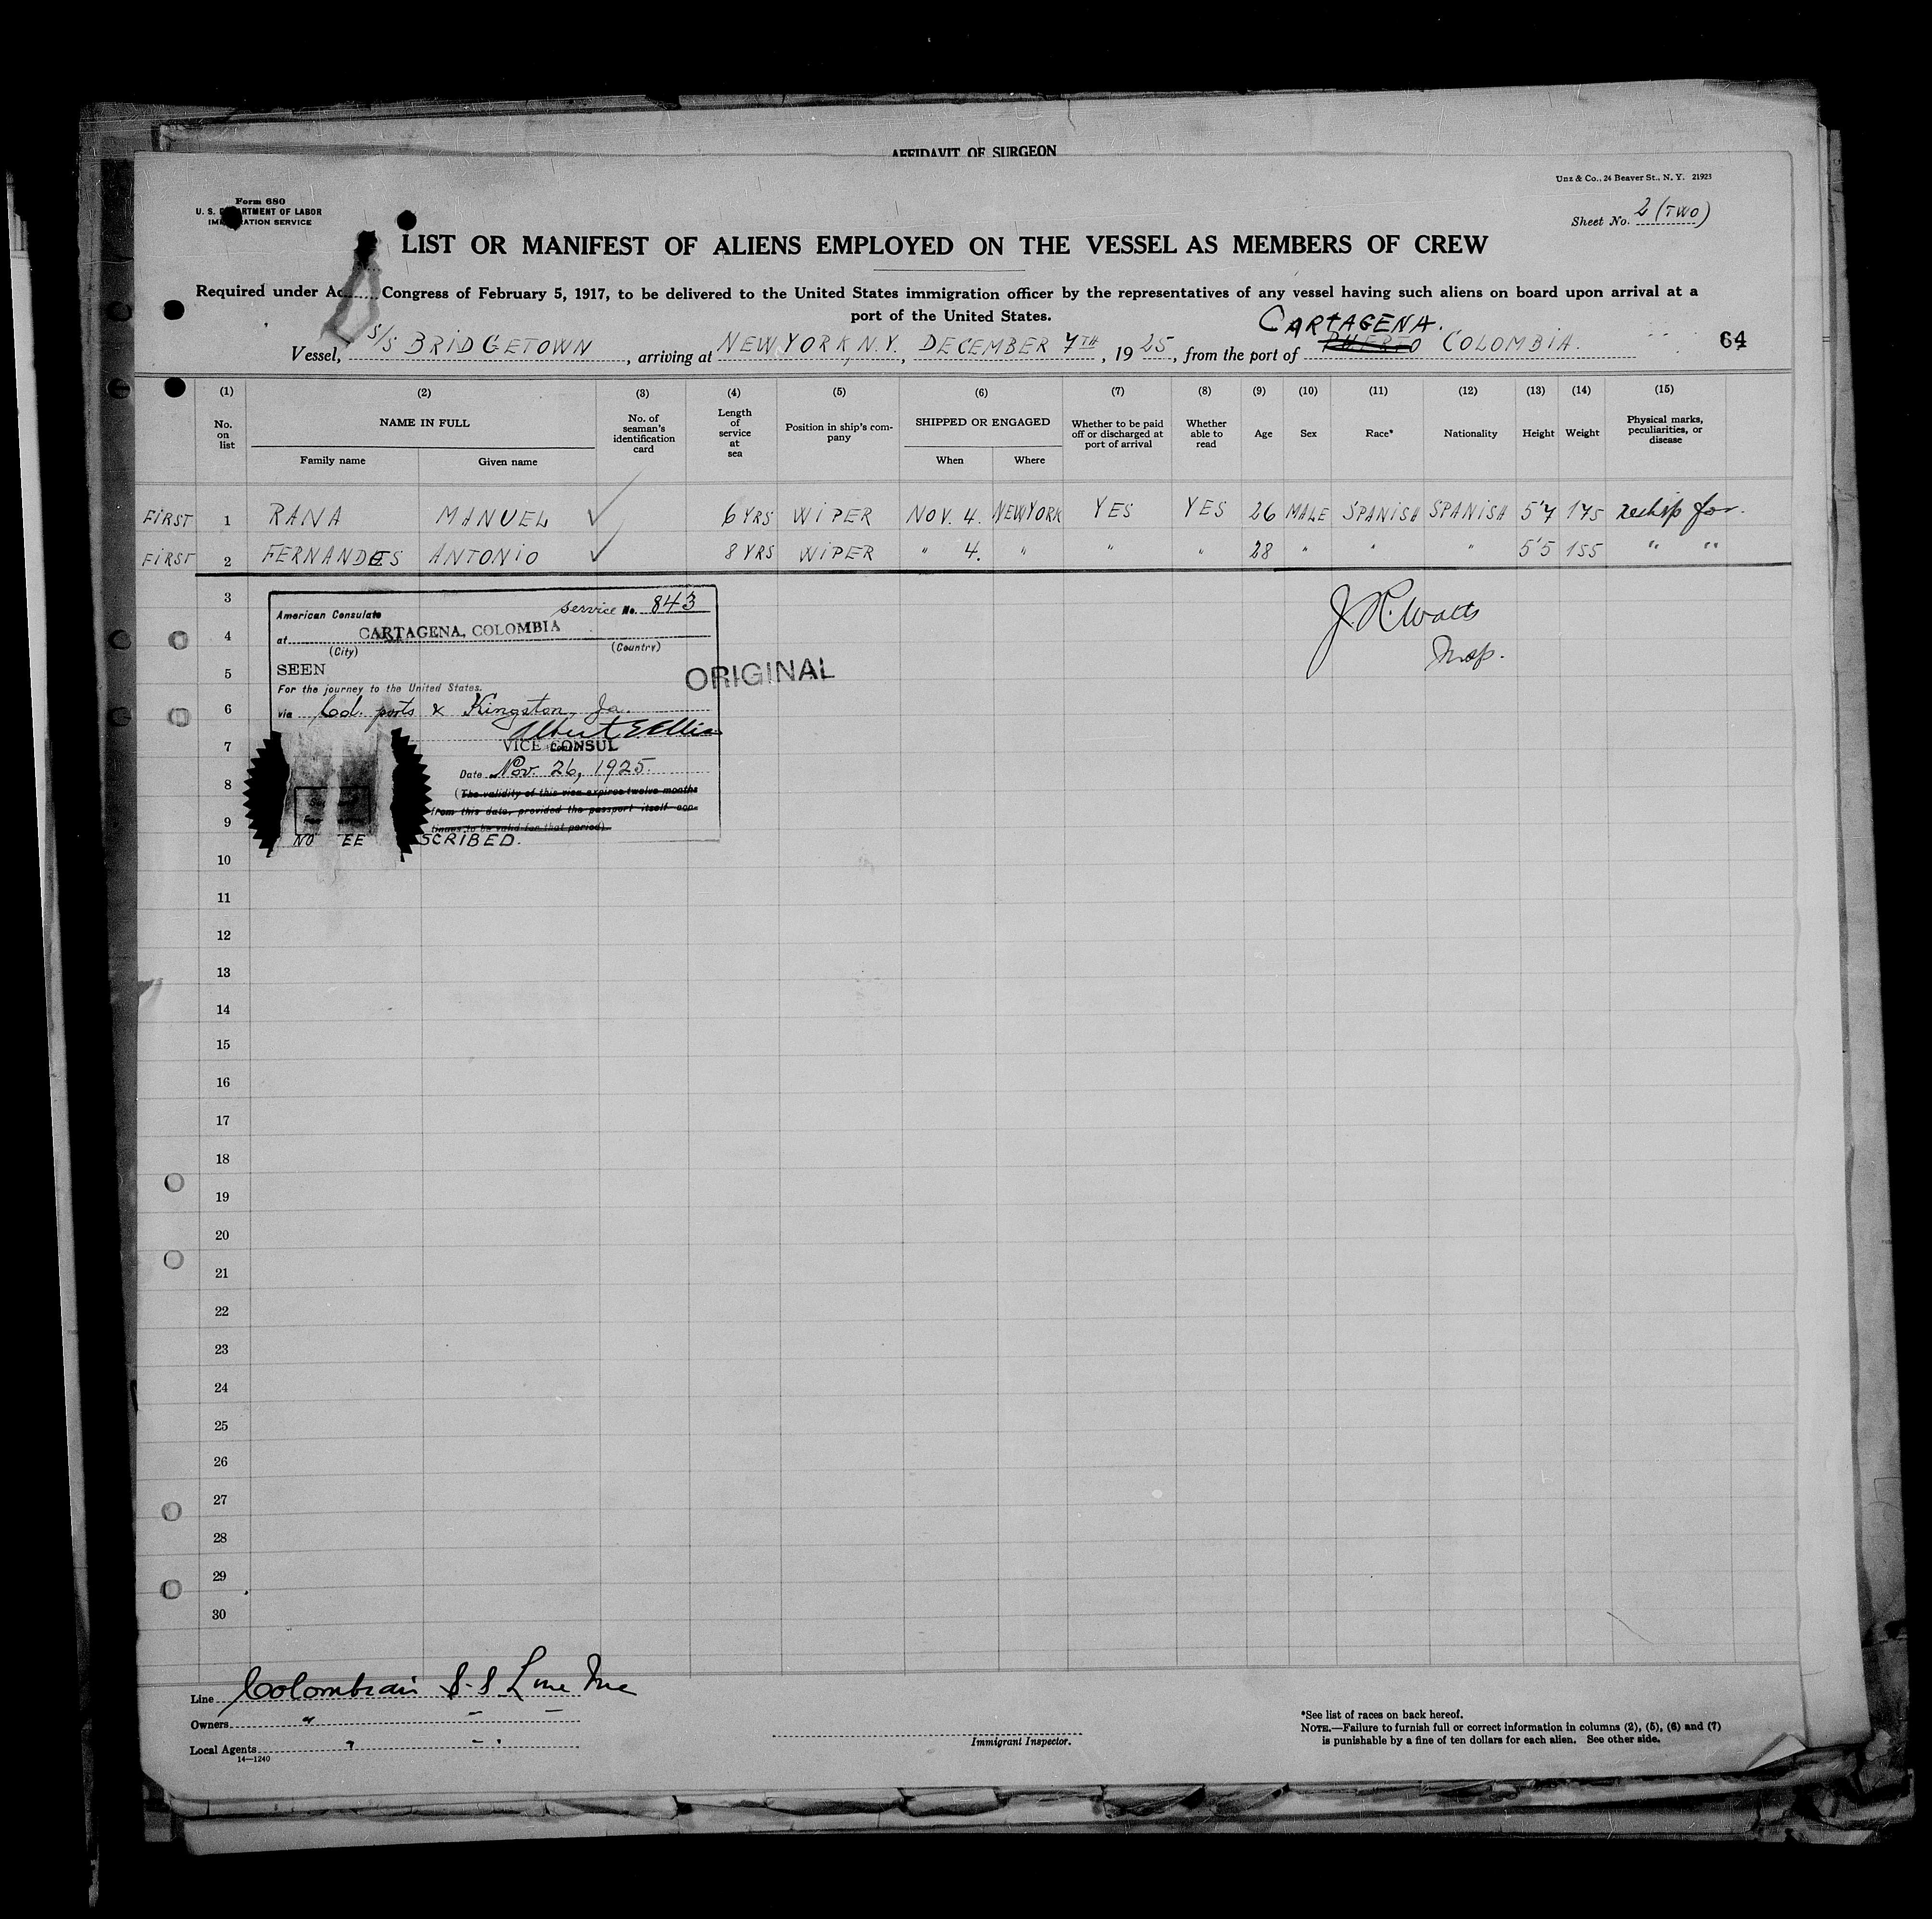 AFFIDAVIT OF SURGEON
Unz & Co., 24 Beaver St., N. Y. 21923
Form 680
U. S. DEPARTMENT OF LABOR
IMMIGRATION SERVICE
Sheet No. 2 (TWO)
LIST OR MANIFEST OF ALIENS EMPLOYED ON THE VESSEL AS MEMBERS OF CREW
Required under Ac Congress of February 5, 1917, to be delivered to the United States immigration officer by the representatives of any vessel having such aliens on board upon arrival at a
port of the United States.
CARTAGENA.
Vessel, S/S BRIDGETOWN, arriving at NEW YORK, N.Y., DECEMBER 7TH, 1925, from the port of PUERTO COLOMBIA.
64
(1) (2) (3) (4) (5) (6) (7) (8) (9) (10) (11) (12) (13) (14) (15)
No. on list NAME IN FULL Family name Given name No. of seaman's identification card Length of service at sea Position in ship's company SHIPPED OR ENGAGED When Where Whether to be paid off or discharged at port of arrival Whether able to read Age Sex Race* Nationality Height Weight Physical marks, peculiarities, or disease
FIRST 1 RANA MANUEL ✓ 6 YRS WIPER NOV. 4. NEW YORK YES YES 26 MALE SPANISH SPANISH 5'7 175 reship for.
FIRST 2 FERNANDES ANTONIO ✓ 8 YRS WIPER " 4. " " " 28 " " " 5'5 155 " "
3
4
5
6
7
8
9
10
11
12
13
14
15
16
17
18
19
20
21
22
23
24
25
26
27
28
29
30
American Consulate service No. 843
at CARTAGENA, COLOMBIA
(City) (Country)
SEEN
For the journey to the United States.
via Col. ports & Kingston, Ja.
Albert E Ellis
VICE CONSUL
Date Nov. 26, 1925.
(The validity of this visa expires twelve months
from this date, provided the passport itself con-
tinues to be valid for that period).
NO EE SCRIBED.
ORIGINAL
J. R. Watts
Insp.
Line Colombian S-S Line Inc
Owners " " "
Local Agents " " "
14—1240
Immigrant Inspector.
*See list of races on back hereof.
NOTE.—Failure to furnish full or correct information in columns (2), (5), (6) and (7)
is punishable by a fine of ten dollars for each alien. See other side.